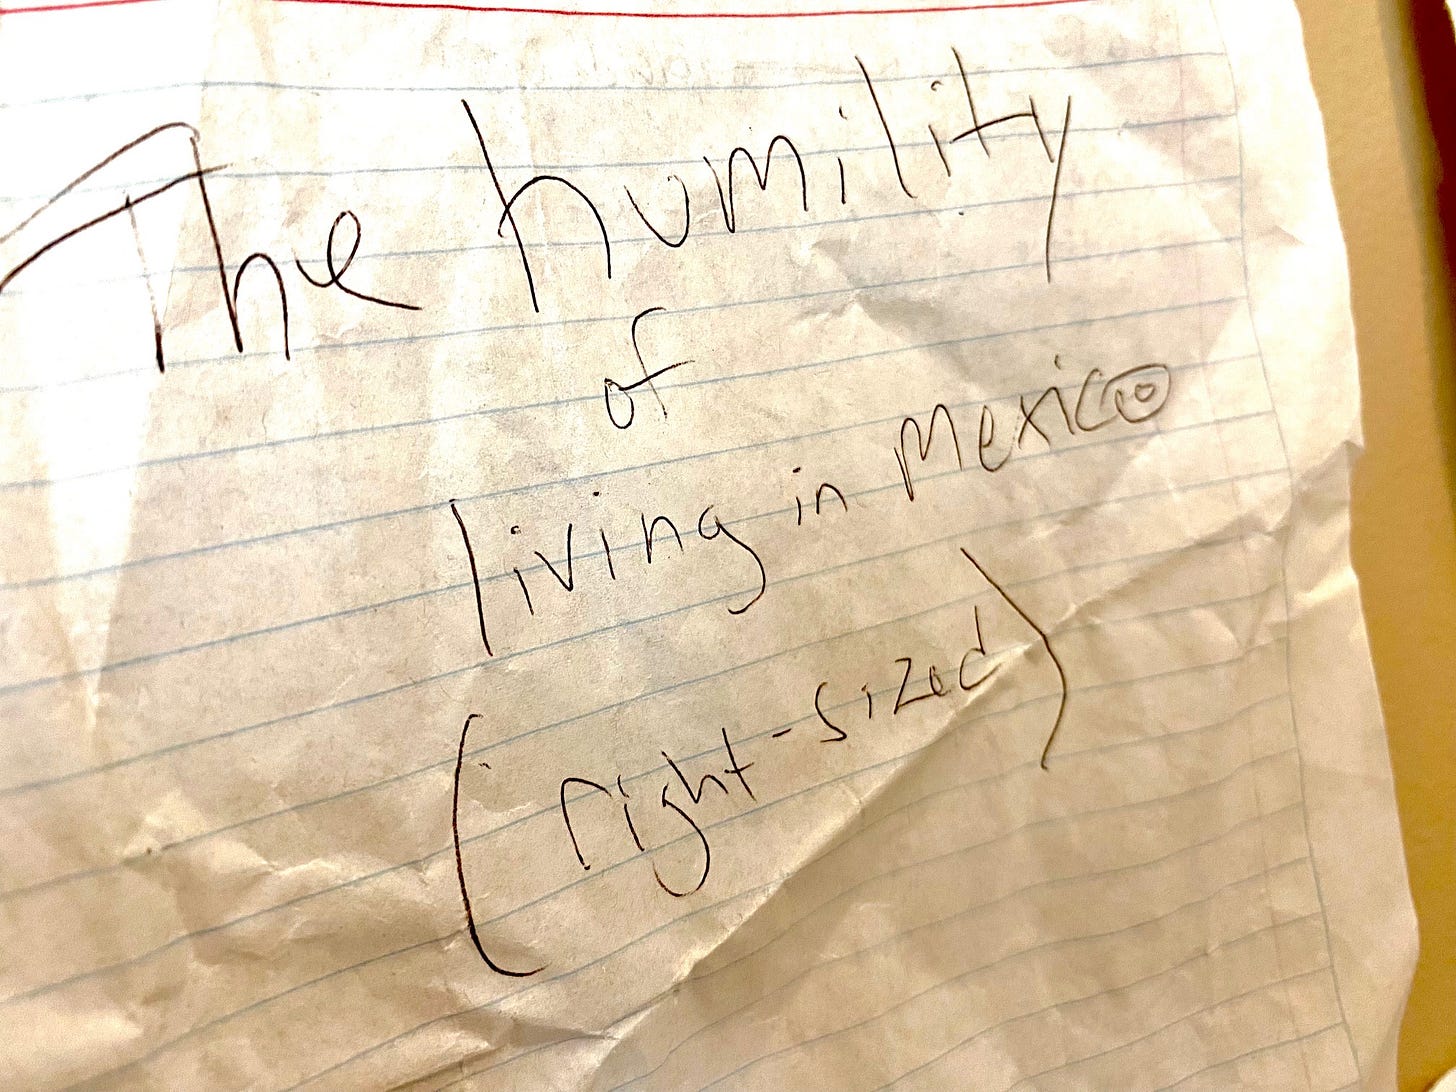 The humility
of
living in Mexico
(right-sized)